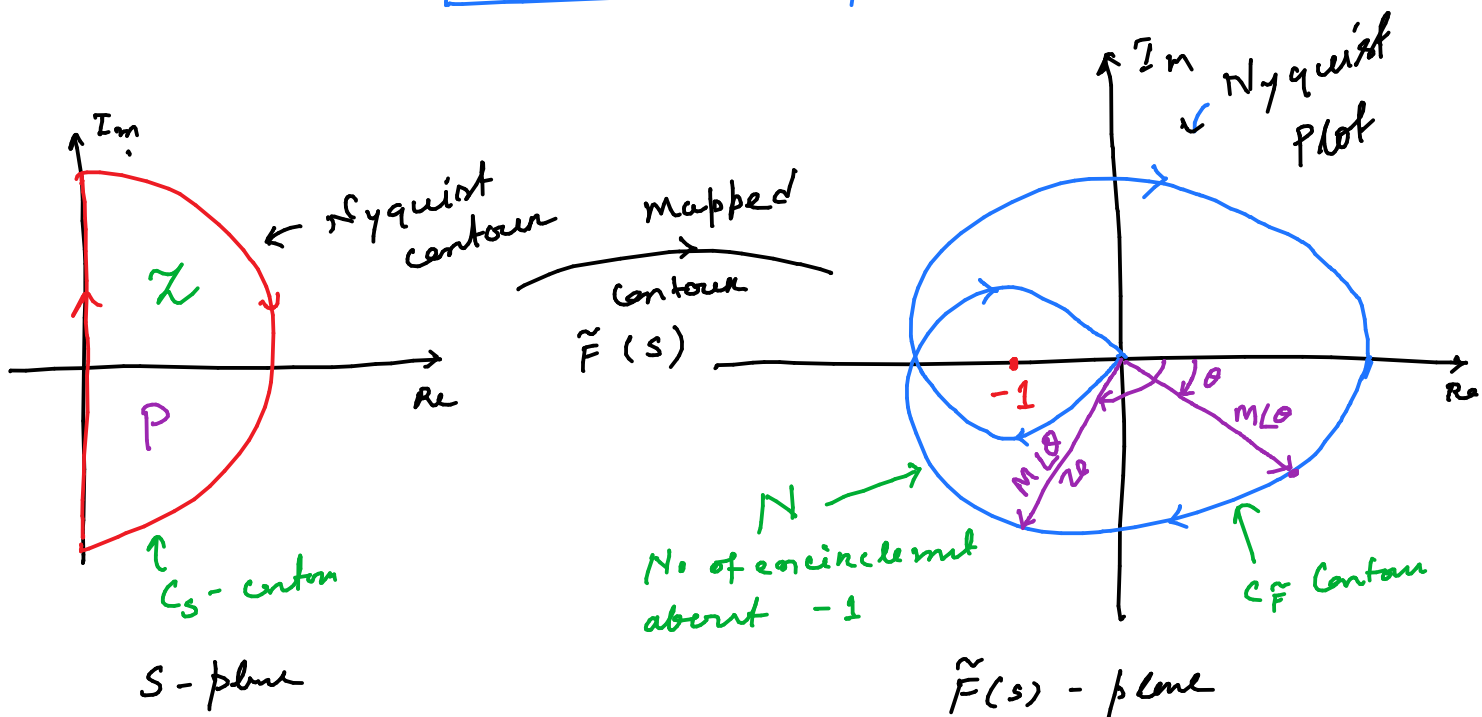 Im
Nyquist
contour
Z
P
Re
Cs - contour
S - plane
Mapped
Contour
F̃ (s)
Im
Nyquist
Plot
-1
Re
θ
M∠θ
M∠θ
N
No of encirclement
about -1
C F̃ Contour
F̃(s) - plane